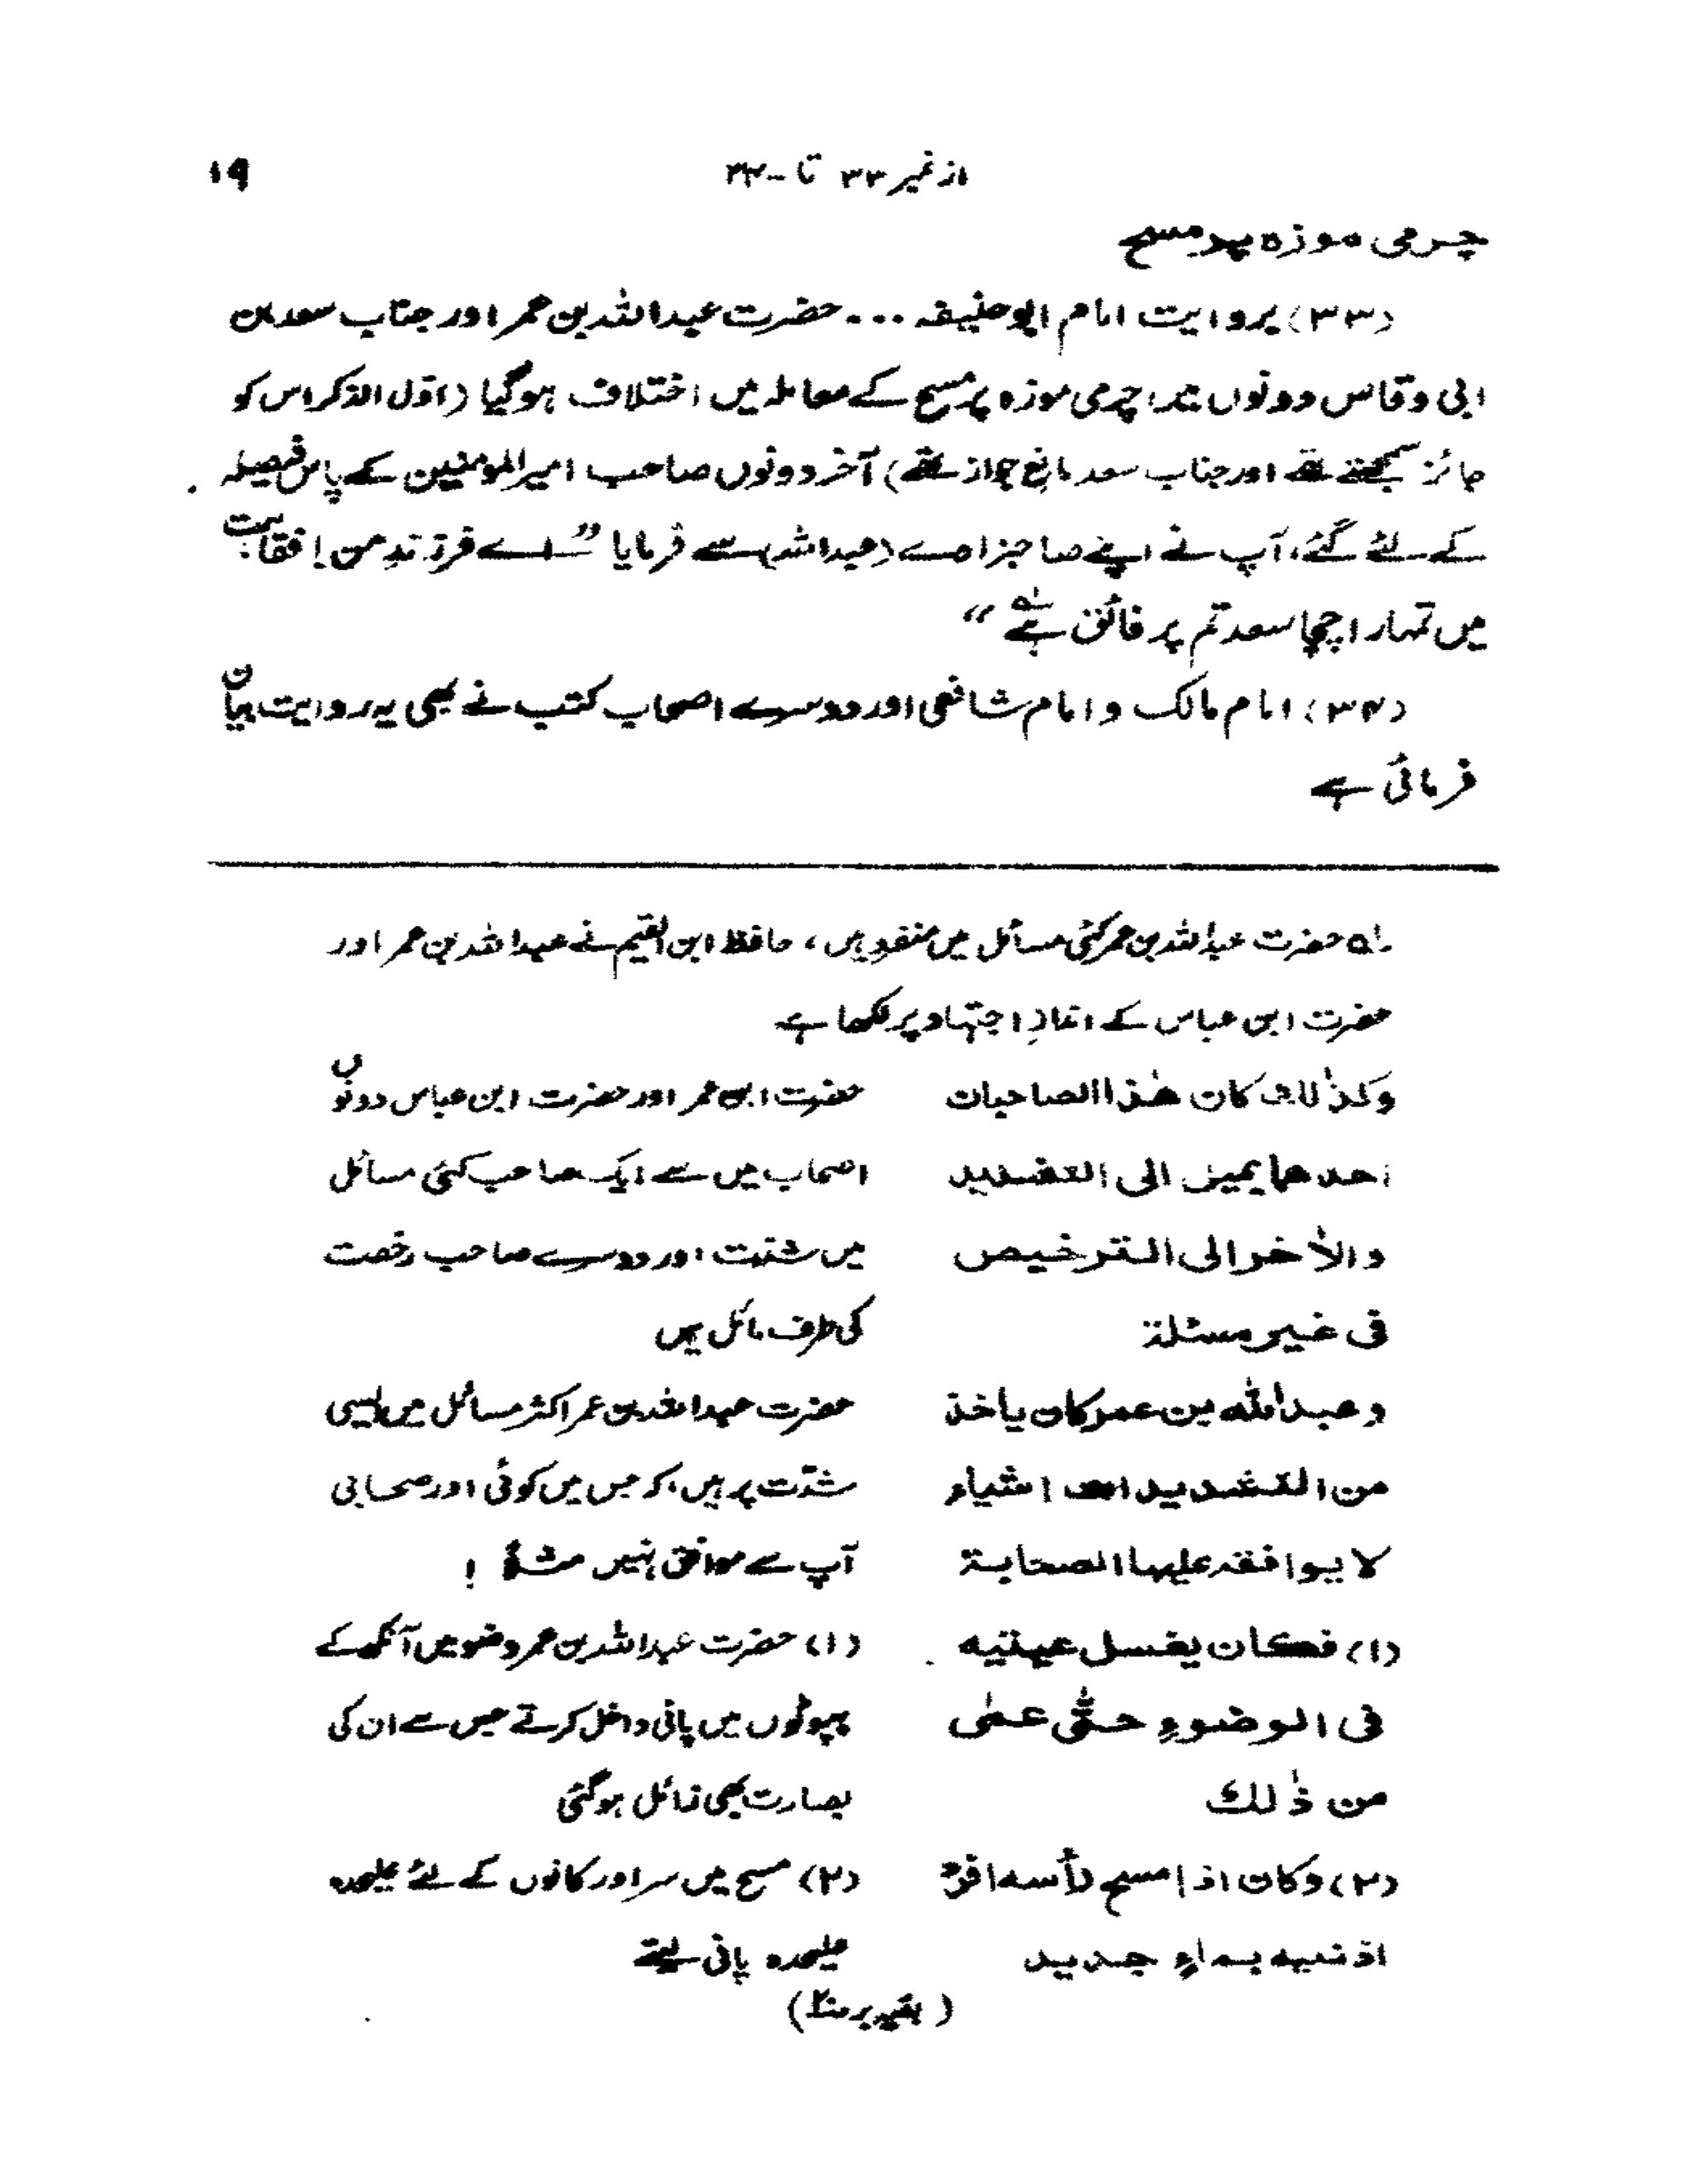 از نمبر ۳۳ تا - ۳۴
۱۹
چرمی موزہ پر مسح
(۳۳) بروایت امام ابوحنیفہ ... حضرت عبداللہ بن عمر اور جناب سعد بن
ابی وقاص دونوں میں چرمی موزہ پر مسح کے معاملہ میں اختلاف ہوگیا (اوّل الذکر اس کو
جائز سمجھتے تھے اور جناب سعد مانع جواز تھے) آخر دونوں صاحب امیرالمومنین کے پاس فیصلہ
کے لئے گئے، آپ نے اپنے صاجزادے (عبداللہ) سے فرمایا ”اے فرزندِ من! فقاہت
میں تمہارا چچا سعد تم پر فائق ہے“
(۳۴) امام مالک و امام شافعی اور دوسرے اصحاب کتب نے بھی یہ روایت بیان
فرمائی ہے
لہ حضرت عبداللہ بن عمر کئی مسائل میں منفرد ہیں، حافظ ابن القیم نے عبداللہ بن عمر اور
حضرت ابن عباس کے اجتہاد پر لکھا ہے
وکذٰلك کان ھٰذا الصاحبان
حضرت ابن عمر اور حضرت ابن عباس دونوں
احدھما یمیل الی التشدید
اصحاب میں سے ایک صاحب کئی مسائل
والاٰخر الی الترخیص
میں شدّت اور دوسرے صاحب رخصت
فی غیر مسئلة
کی طرف مائل ہیں
وعبداللہ بن عمر کان یاخذ
حضرت عبداللہ بن عمر اکثر مسائل میں ایسی
من التشدیدات اشیاء
شدّت پر ہیں، کہ جس میں کوئی اور صحابی
لا یوافقہ علیہا الصحابة
آپ سے موافق نہیں مثلاً !
(۱) فکان یغسل عینیہ
(۱) حضرت عبداللہ بن عمر وضو میں آنکھ کے
فی الوضوءِ حتّٰی عمٰی
پپوٹوں میں پانی داخل کرتے جس سے ان کی
من ذٰلك
بصارت بھی زائل ہوگئی
(۲) وکان اذا مسح رأسہ افرد
(۲) مسح میں سر اور کانوں کے لئے علیحدہ
اذنیہ بماءٍ جدید
علیحدہ پانی لیتے
(بقیہ بر)